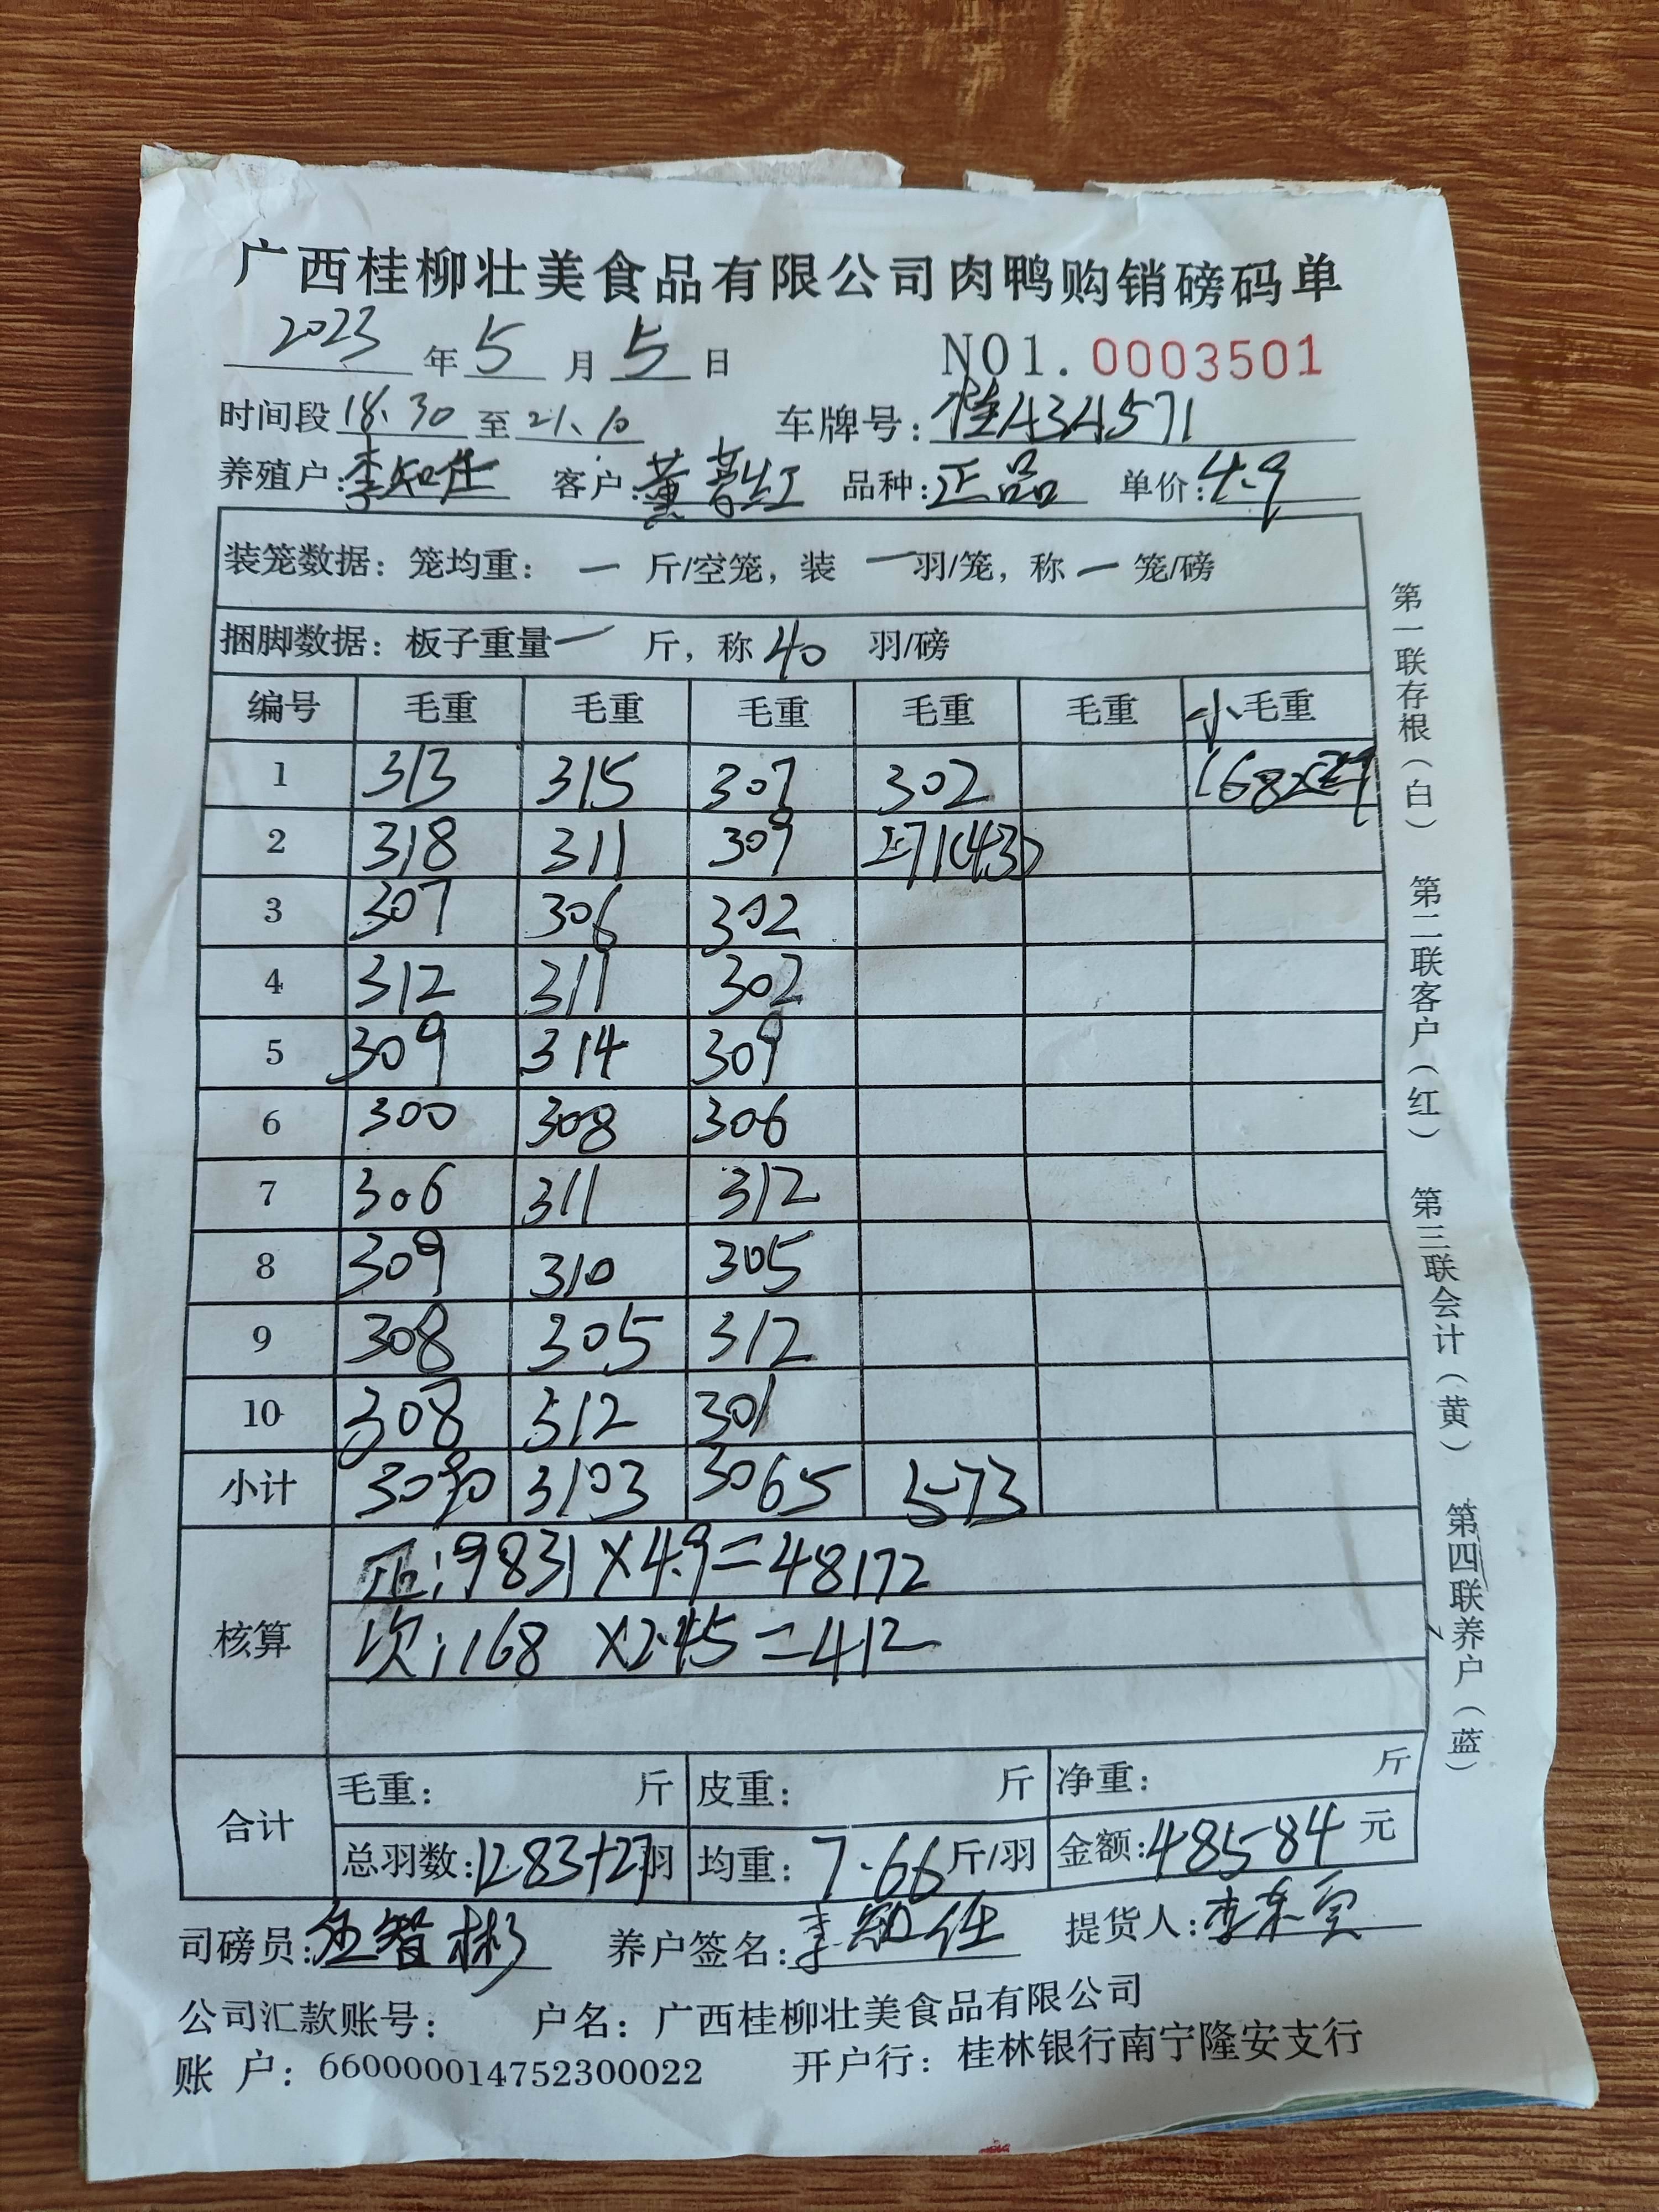 广西桂柳壮美食品有限公司肉鸭购销磅码单
2023年5月5日 NO1.0003501
时间段18:30至21:10 车牌号:桂A34571
养殖户:李知仕 客户:黄 红 品种:正品 单价:4.9
装笼数据:笼均重:一斤/空笼,装一羽/笼,称一笼/磅
捆脚数据:板子重量一斤,称40羽/磅
编号 毛重 毛重 毛重 毛重 毛重 小毛重
1 313 315 307 302 168
2 318 311 309 271(43)
3 307 306 302
4 312 311 302
5 309 314 309
6 300 308 306
7 306 311 312
8 309 310 305
9 308 305 312
10 308 312 301
小计 3090 3103 3065 573
核算
正:9831×4.9=48172
次:168×2.45=412
合计
毛重: 斤 皮重: 斤 净重: 斤
总羽数:1283+27羽 均重:7.66斤/羽 金额:48584元
司磅员: 智彬 养户签名:李知仕 提货人:李
公司汇款账号: 户名:广西桂柳壮美食品有限公司
账 户:660000014752300022 开户行:桂林银行南宁隆安支行
第一联存根(白) 第二联客户(红) 第三联会计(黄) 第四联养户(蓝)